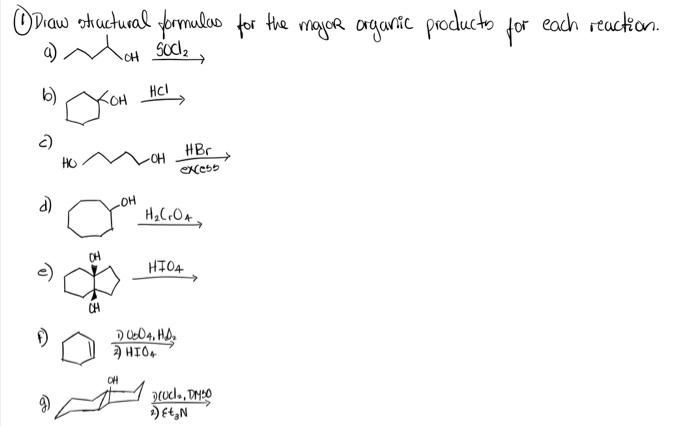 ① Draw structural formulas for the major organic products for each reaction.
a) OH SOCl₂
b) OH HCl
c) HO OH HBr excess
d) OH H₂CrO₄
e) OH OH HIO₄
f) 1) OsO₄, H₂O₂ 2) HIO₄
g) OH 1) (COCl)₂, DMSO 2) Et₃N